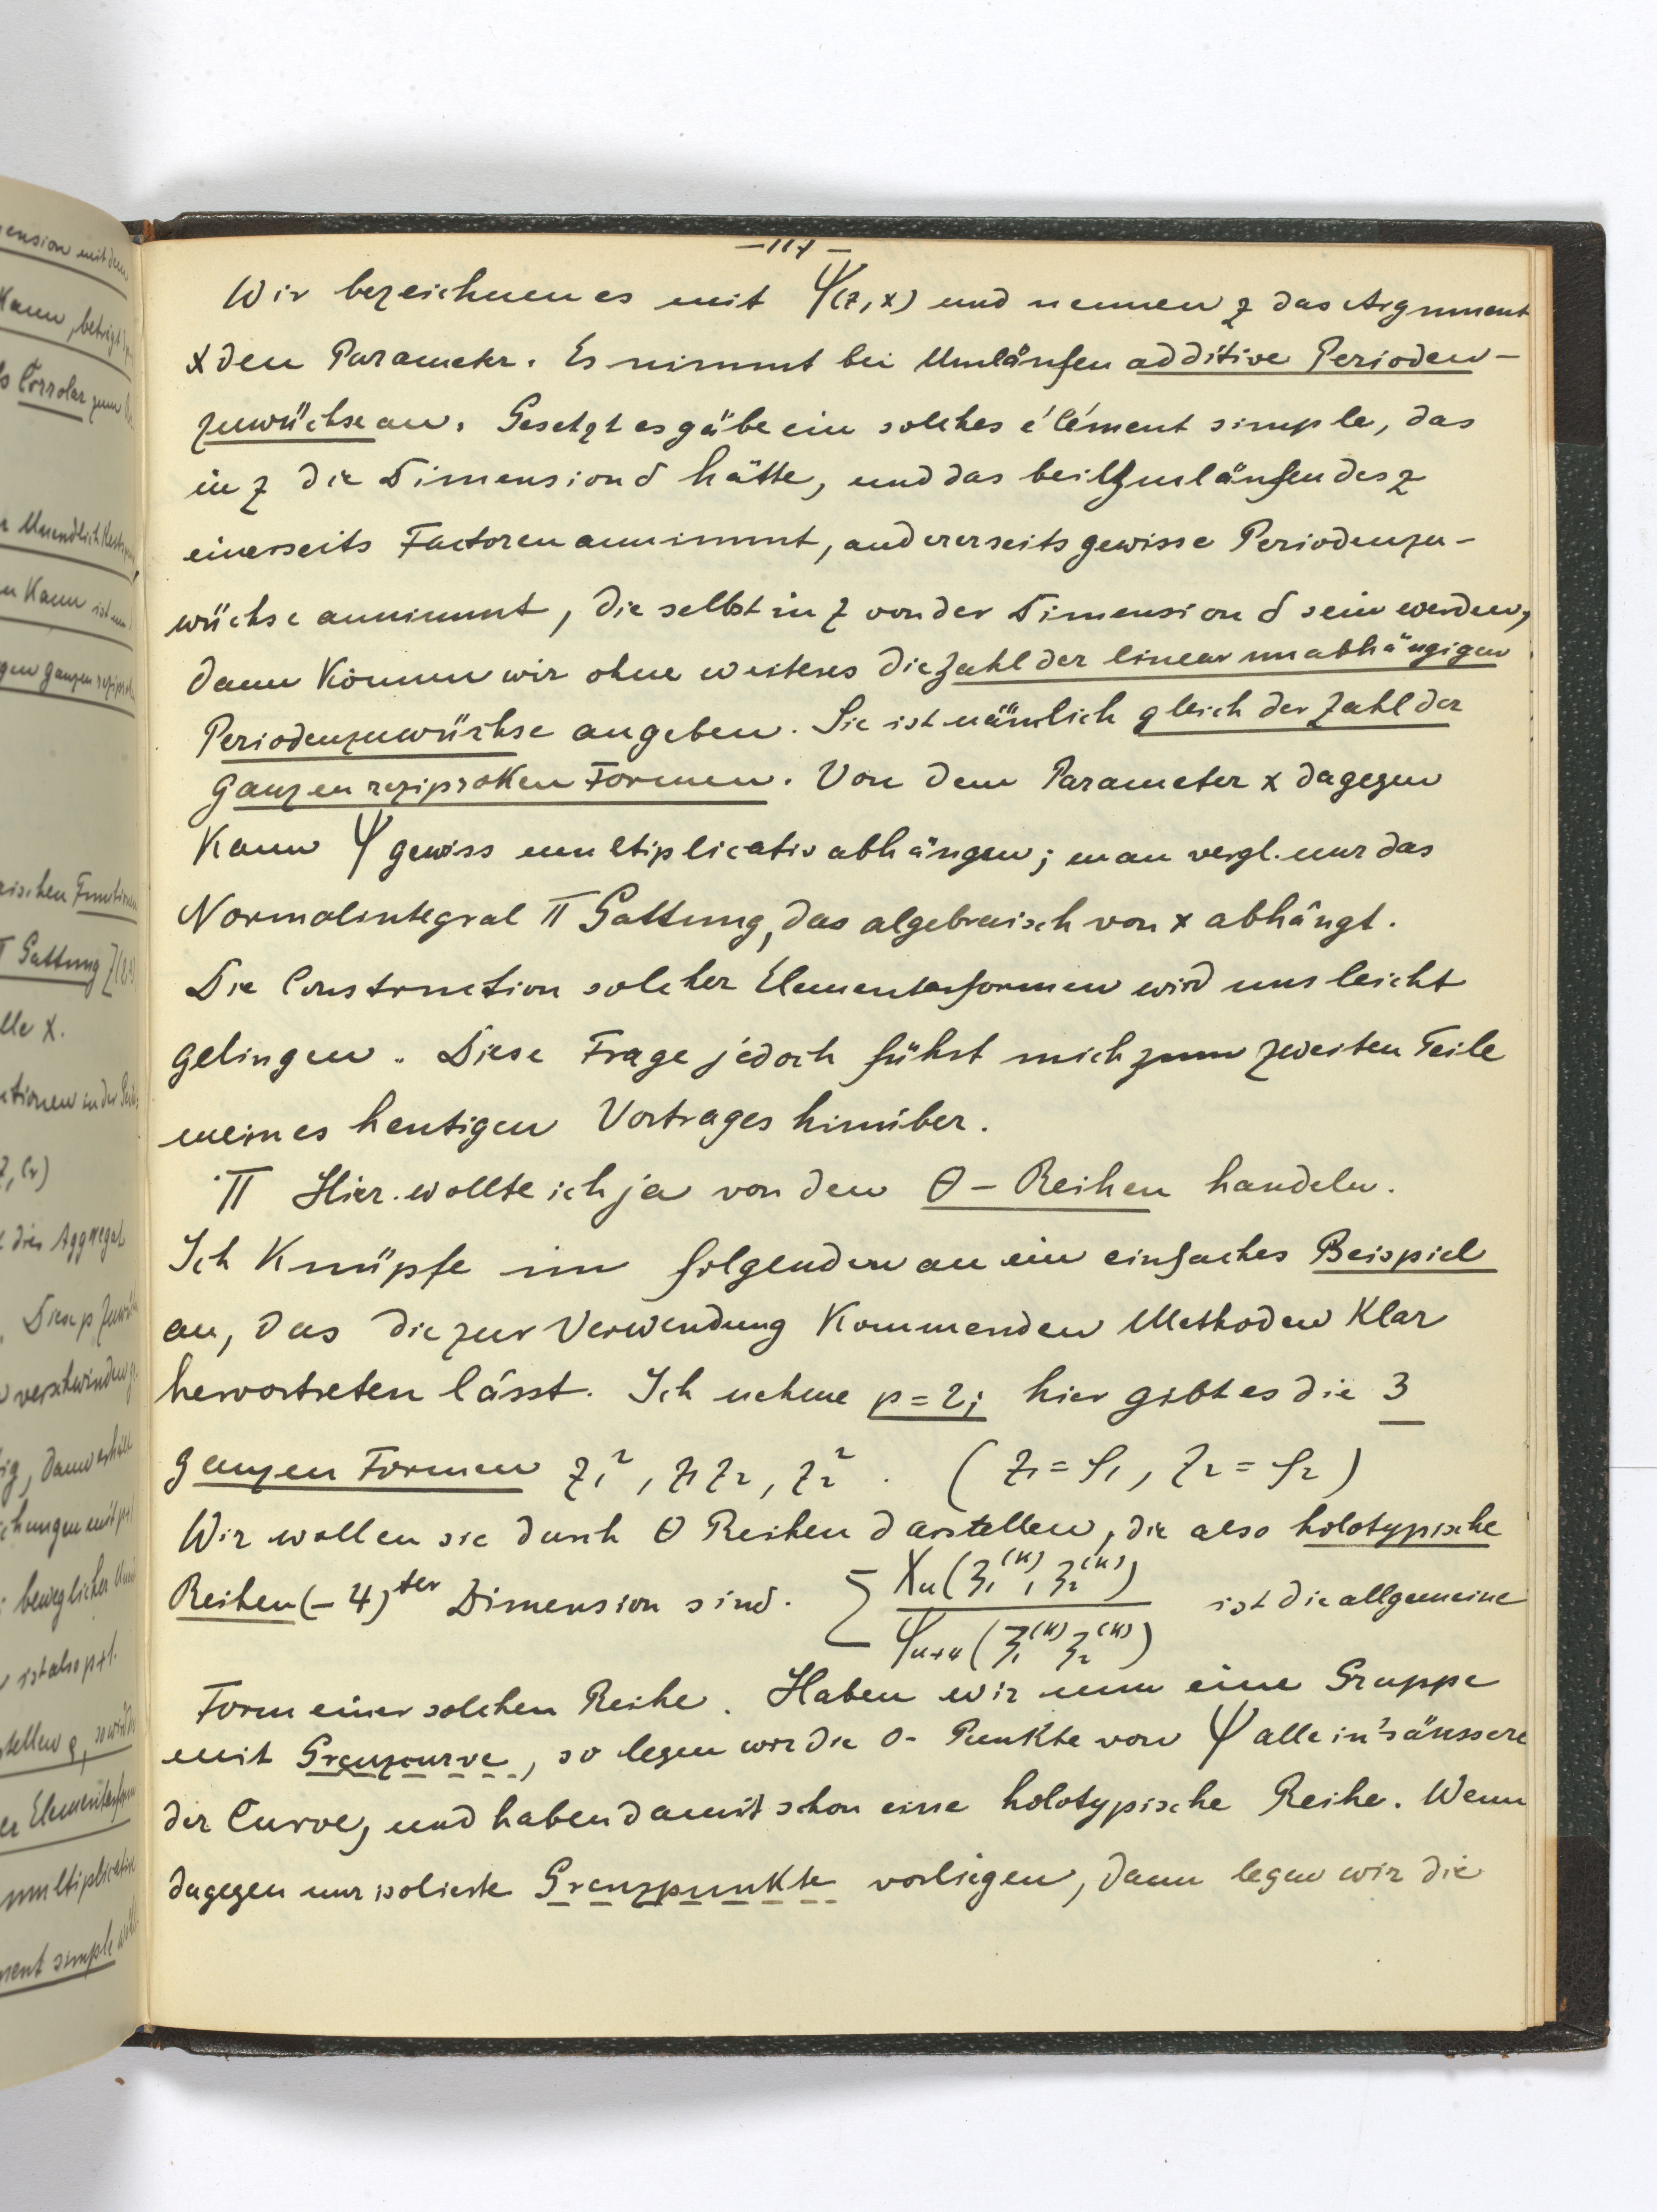 ension mit dem
Kann, beträgt
Corrolar zum
Unendlich
n Kann ist
gen ganzen
rischen Function
II Gattung
lle x.
ctionen in der
dies Aggregat
Diese p
verschwinden
ig, dann
chungen mit p+1
beweglicher
ist also p+1.
stellen
er Elementarform
multiplicativ
ment simple
—117—
Wir bezeichnen es mit Ψ(z,x) und nennen z das Argument
x den Parameter. Es nimmt bei Umläufen additive Perioden-
zuwüchse an. Gesetzt es gäbe ein solches élément simple, das
in z die Dimension d hätte, und das bei Umläufen des z
einerseits Factoren annimmt, andererseits gewisse Periodenzu-
wüchse annimmt, die selbst in z von der Dimension d sein werden,
dann können wir ohne weiteres die Zahl der linear unabhängigen
Periodenzuwüchse angeben. Sie ist nämlich gleich der Zahl der
ganzen reziproken Formen. Von dem Parameter x dagegen
kann Ψ gewiss multiplicativ abhängen; man vergl. nur das
Normalintegral II Gattung, das algebraisch von x abhängt.
Die Construction solcher Elementarformen wird uns leicht
gelingen. Diese Frage jedoch führt mich zum zweiten Teile
meines heutigen Vortrages hinüber.
II Hier wollte ich ja von den θ-Reihen handeln.
Ich knüpfe im folgenden an ein einfaches Beispiel
an, das die zur Verwendung kommenden Methoden klar
hervortreten lässt. Ich nehme p=2; hier gibt es die 3
ganzen Formen z₁², z₁z₂, z₂². (z₁=φ₁, z₂=φ₂)
Wir wollen sie durch θ Reihen darstellen, die also holotypische
Reihen (-4)ter Dimension sind. Σ Χₙ(ζ₁⁽ᵏ⁾, ζ₂⁽ᵏ⁾) / Ψₙ₊₄(ζ₁⁽ᵏ⁾ ζ₂⁽ᵏ⁾) ist die allgemeine
Form einer solchen Reihe. Haben wir nun eine Gruppe
mit Grenzcurve, so legen wir die 0-Punkte von Ψ alle in's äussere
der Curve, und haben damit schon eine holotypische Reihe. Wenn
dagegen nur isolierte Grenzpunkte vorliegen, dann legen wir die